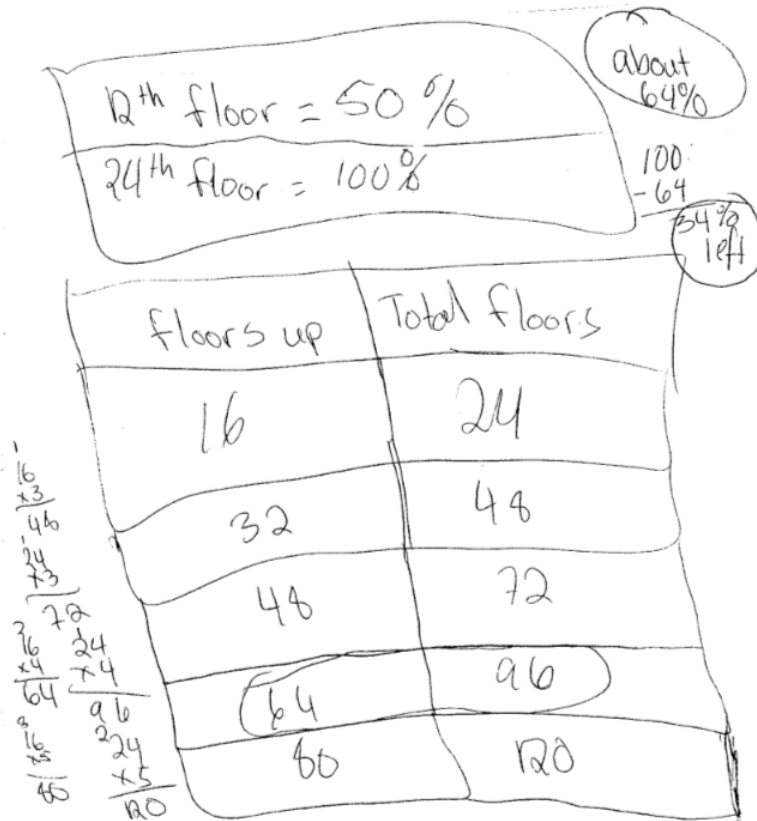 12th floor = 50%
24th floor = 100%
about
64%
100
- 64
34%
left
floors up Total floors
16 24
32 48
48 72
64 96
80 120
1
16
x3
48
1
24
x3
72
2
16
x4
64
1
24
x4
96
3
16
x5
80
2
24
x5
120